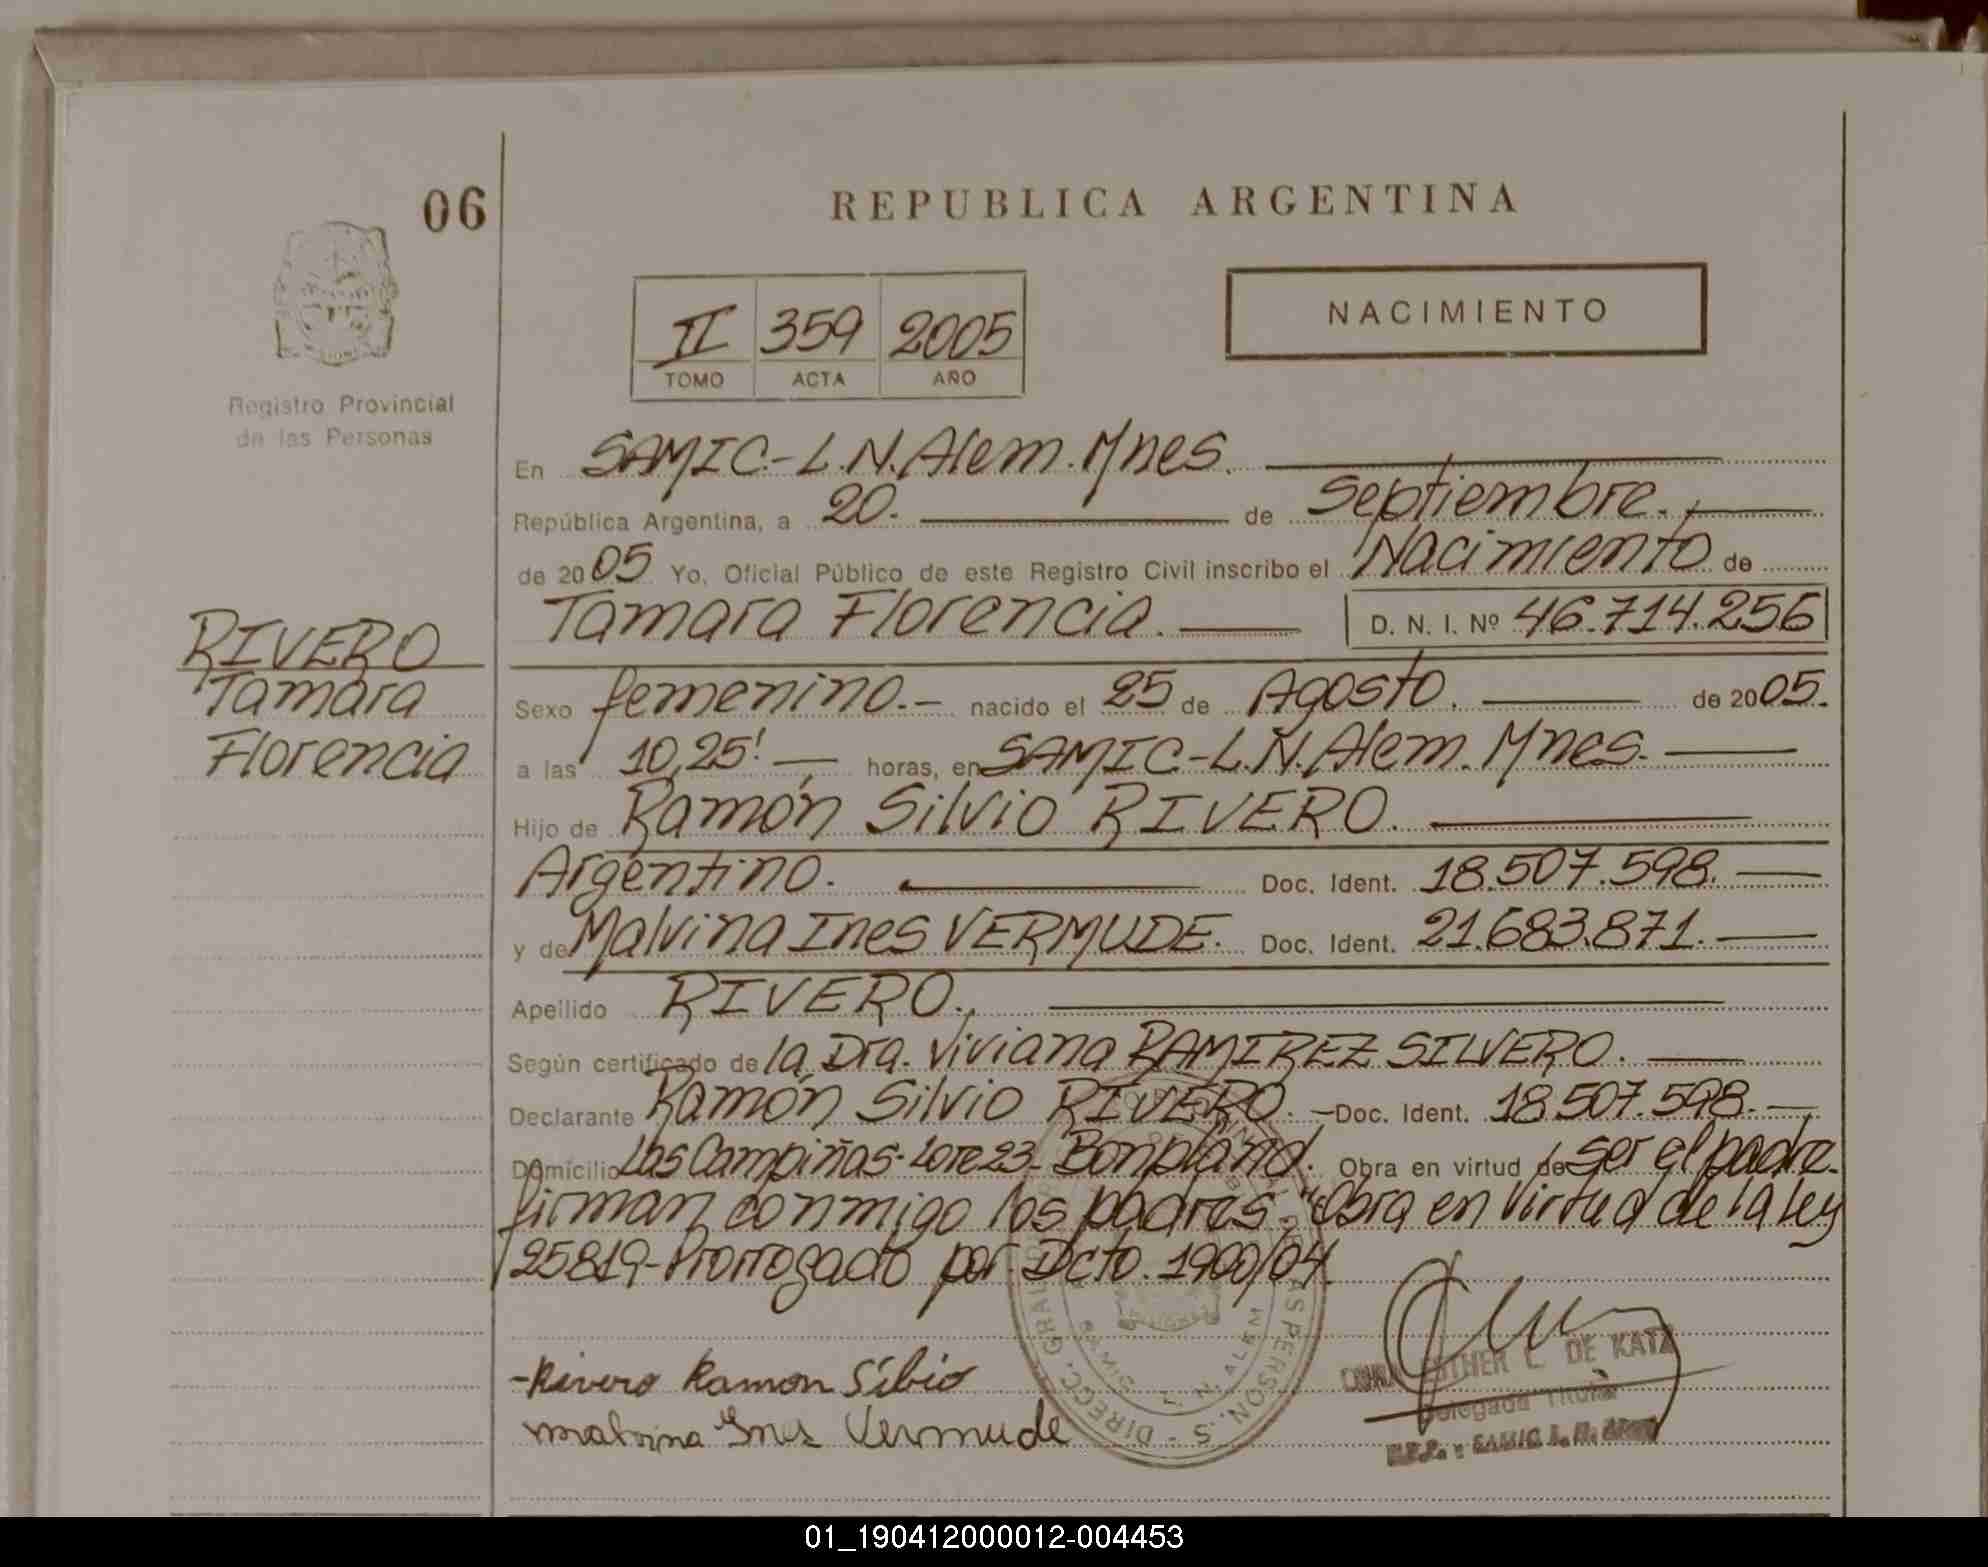 06
REPUBLICA ARGENTINA
II 359 2005
TOMO ACTA AÑO
NACIMIENTO
Registro Provincial
de las Personas
En SAMIC.-L.N.Alem.Mnes.
República Argentina, a 20. de Septiembre.
de 2005 Yo, Oficial Público de este Registro Civil inscribo el Nacimiento de
Tamara Florencia. D. N. I. Nº 46.714.256
RIVERO
Tamara
Florencia
Sexo femenino.- nacido el 25 de Agosto. de 2005.
a las 10,25! horas, en SAMIC-L.N.Alem. Mnes.
Hijo de Ramón Silvio RIVERO.
Argentino. Doc. Ident. 18.507.598.
y de Malvina Ines VERMUDE. Doc. Ident. 21.683.871.
Apellido RIVERO.
Según certificado de la Dra. Viviana RAMIREZ SILVERO.
Declarante Ramón Silvio RIVERO. - Doc. Ident. 18.507.598.
Domicilio Las Campiñas-Lote 23- Bonpland. Obra en virtud de ser el padre.
firman conmigo los padres."Obra en virtud de la ley
25819-Prorrogado por Dcto. 1900/04.
-Rivero Ramon Silbio
malvina Ines Vermude
DIRECC. GRAL.
PERSON. S.
SAMIC L. N. ALEM
ESTHER L. DE KATZ
Delegada Titular
SAMIC L. N. ALEM
01_190412000012-004453